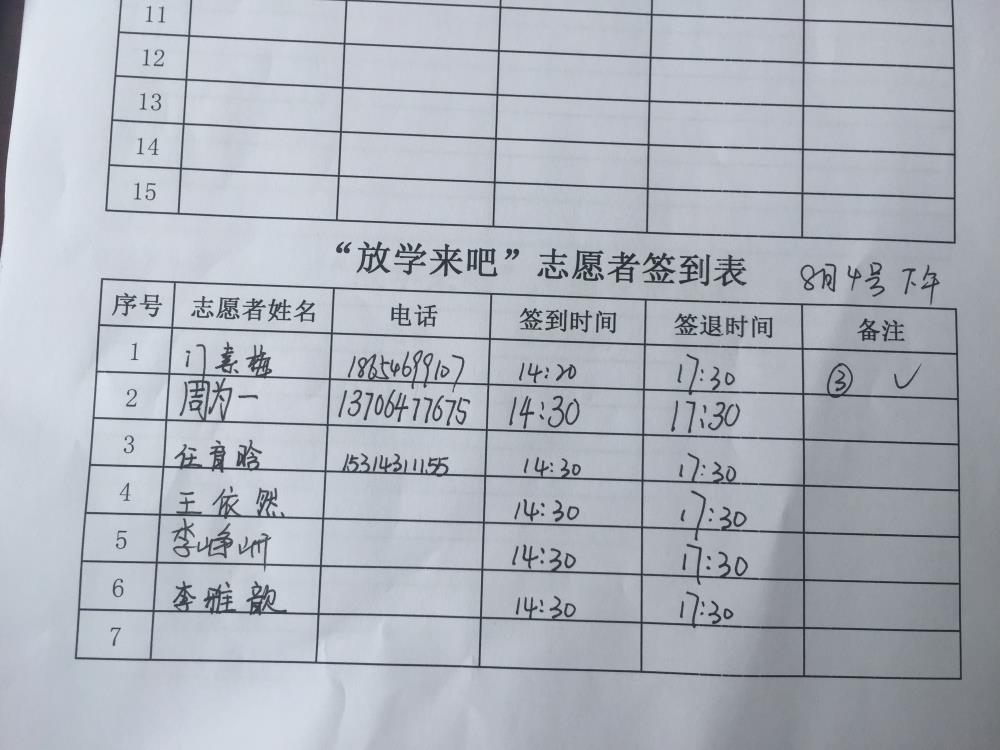 11
12
13
14
15
“放学来吧”志愿者签到表 8月4号 下午
序号 志愿者姓名 电话 签到时间 签退时间 备注
1 门素梅 18654699107 14:20 17:30 ③ ✓
2 周为一 13706477675 14:30 17:30
3 任育晗 15314311155 14:30 17:30
4 王依然 14:30 17:30
5 李峥 14:30 17:30
6 李雅歆 14:30 17:30
7